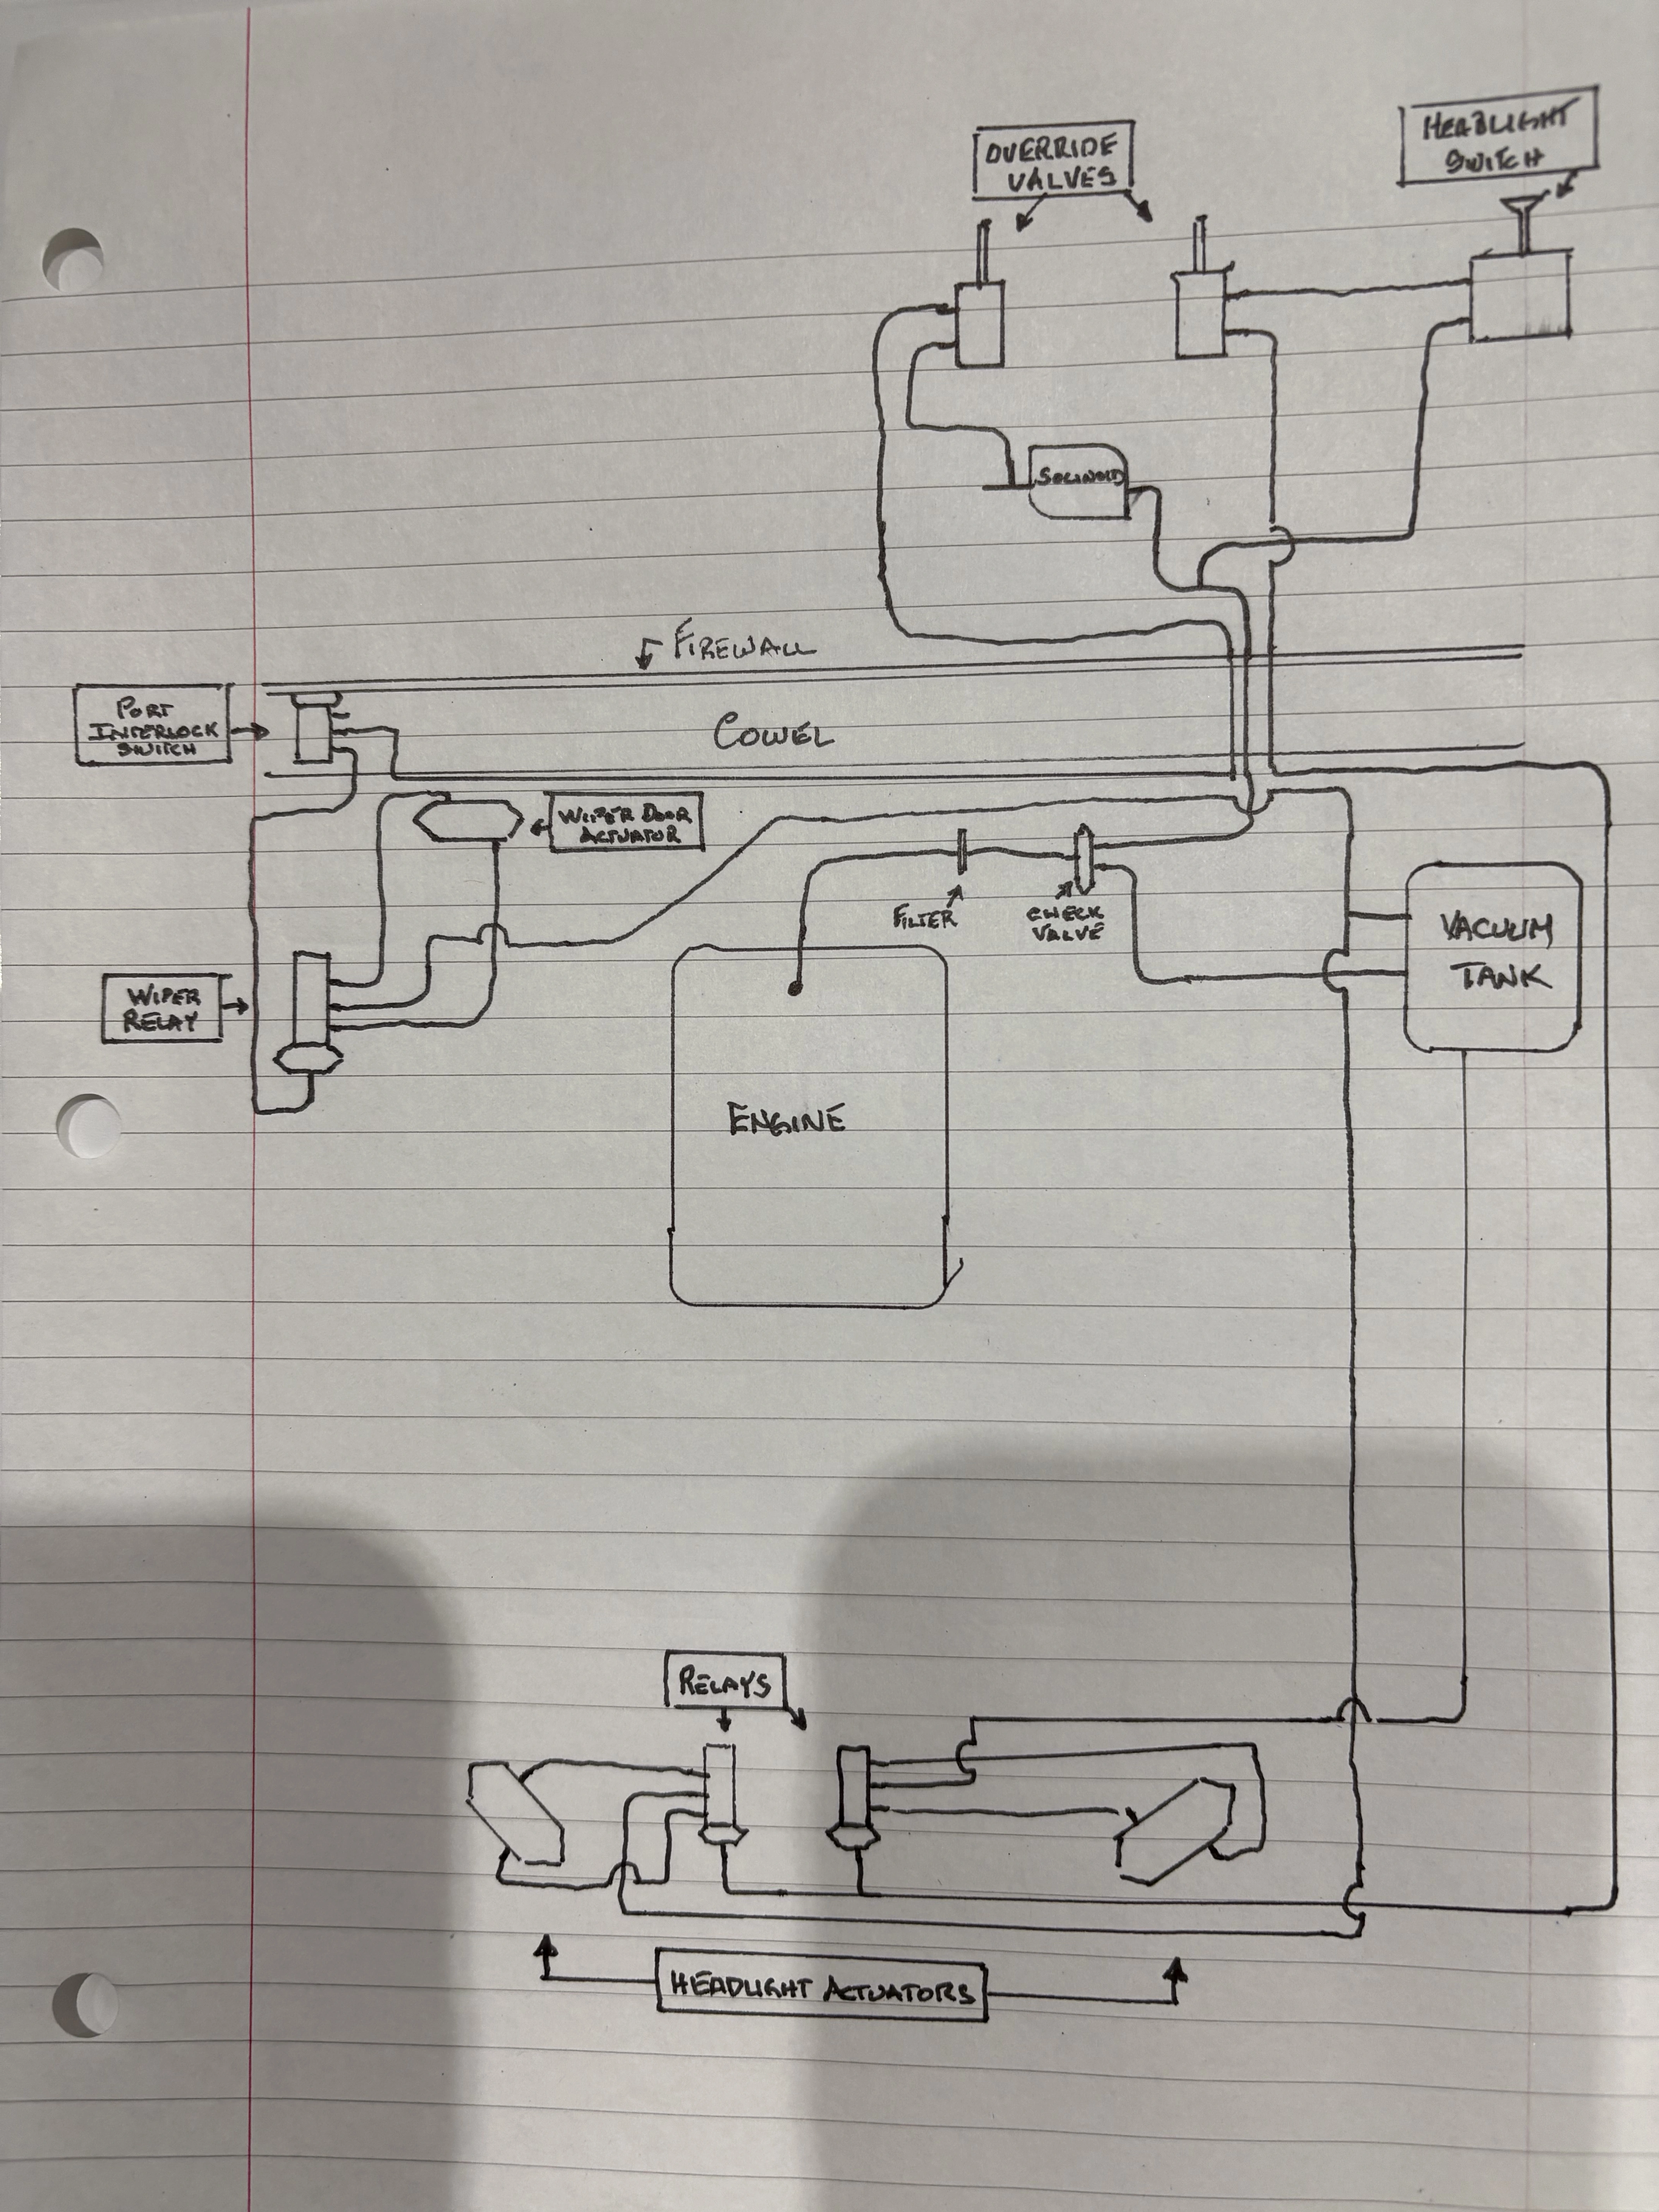 OVERRIDE
VALVES
HEADLIGHT
SWITCH
SOLINOID
FIREWALL
PORT
INTERLOCK
SWITCH
COWEL
WIPER DOOR
ACTUATOR
FILTER
CHECK
VALVE
VACUUM
TANK
WIPER
RELAY
ENGINE
RELAYS
HEADLIGHT ACTUATORS